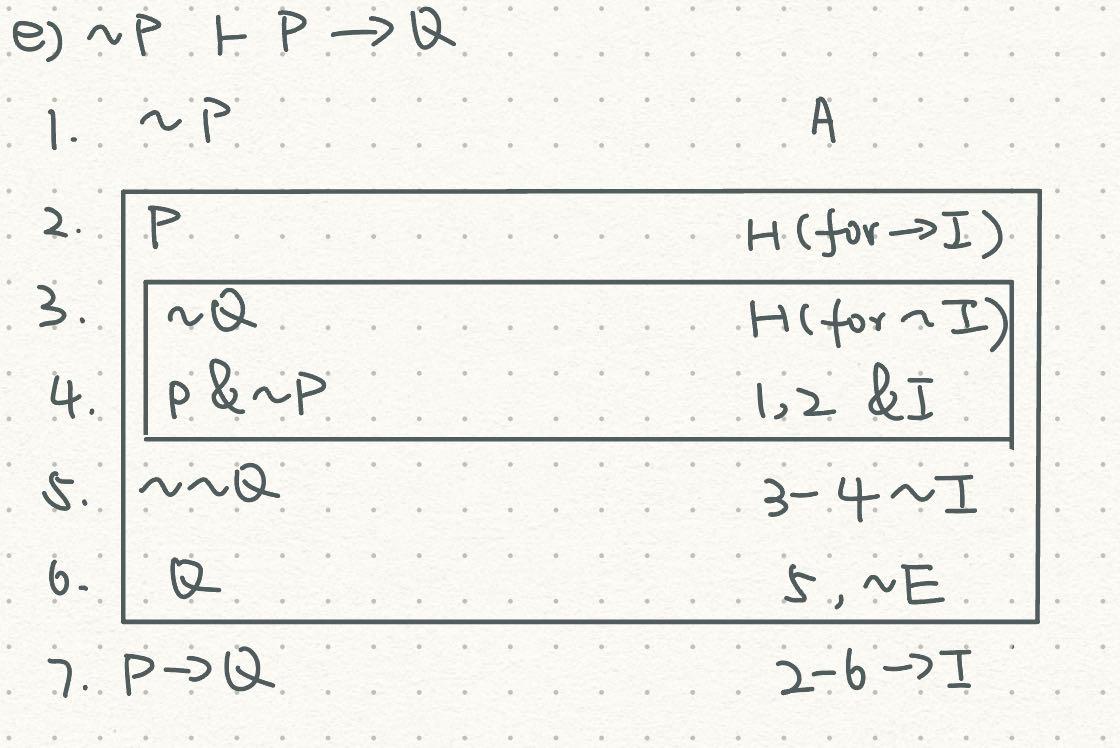 e) ~P ⊢ P → Q
1. ~P A
2. P H (for → I)
3. ~Q H (for ~ I)
4. P & ~P 1,2 & I
5. ~~Q 3-4 ~I
6. Q 5, ~E
7. P → Q 2-6 → I